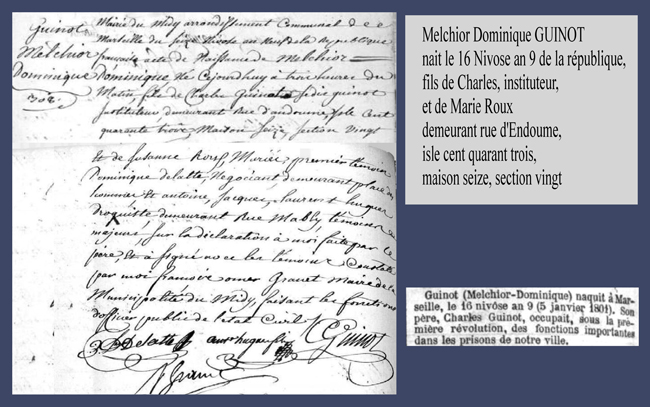 Guinot
Melchior
Dominique
302.
Mairie du Midy arrondissement Communal de
Marseille du seize Nivose an Neuf de la Republique
francaise acte de Naissance de Melchior
Dominique Né Cejourdhuy a trois heures du
Matin, fils de Charles Guinot
Instituteur demeurant Rue d'andoume, isle Cent
quarante trois, Maison Seize, Section Vingt
Et de Susanne Roux, Mariés, premier témoin
Dominique delatte, Negociant, demeurant place
hommes Et antoine, Jacques, Laurent hugues
Droquiste demeurant Rue Mably, témoins
majeurs, Sur la déclaration à moi faite par le
père, Et à signé avec les témoins Constaté
par moi francois omer Granet Maire de la
Municipalité du Midy, faisant les fonctions
d'officier public de l'état Civil
Delatte hugues Guinot
Granet
Melchior Dominique GUINOT
nait le 16 Nivose an 9 de la république,
fils de Charles, instituteur,
et de Marie Roux
demeurant rue d'Endoume,
isle cent quarant trois,
maison seize, section vingt
Guinot (Melchior-Dominique) naquit à Mar-
seille, le 16 nivôse an 9 (5 janvier 1801). Son
père, Charles Guinot, occupait, sous la pre-
mière révolution, des fonctions importantes
dans les prisons de notre ville.